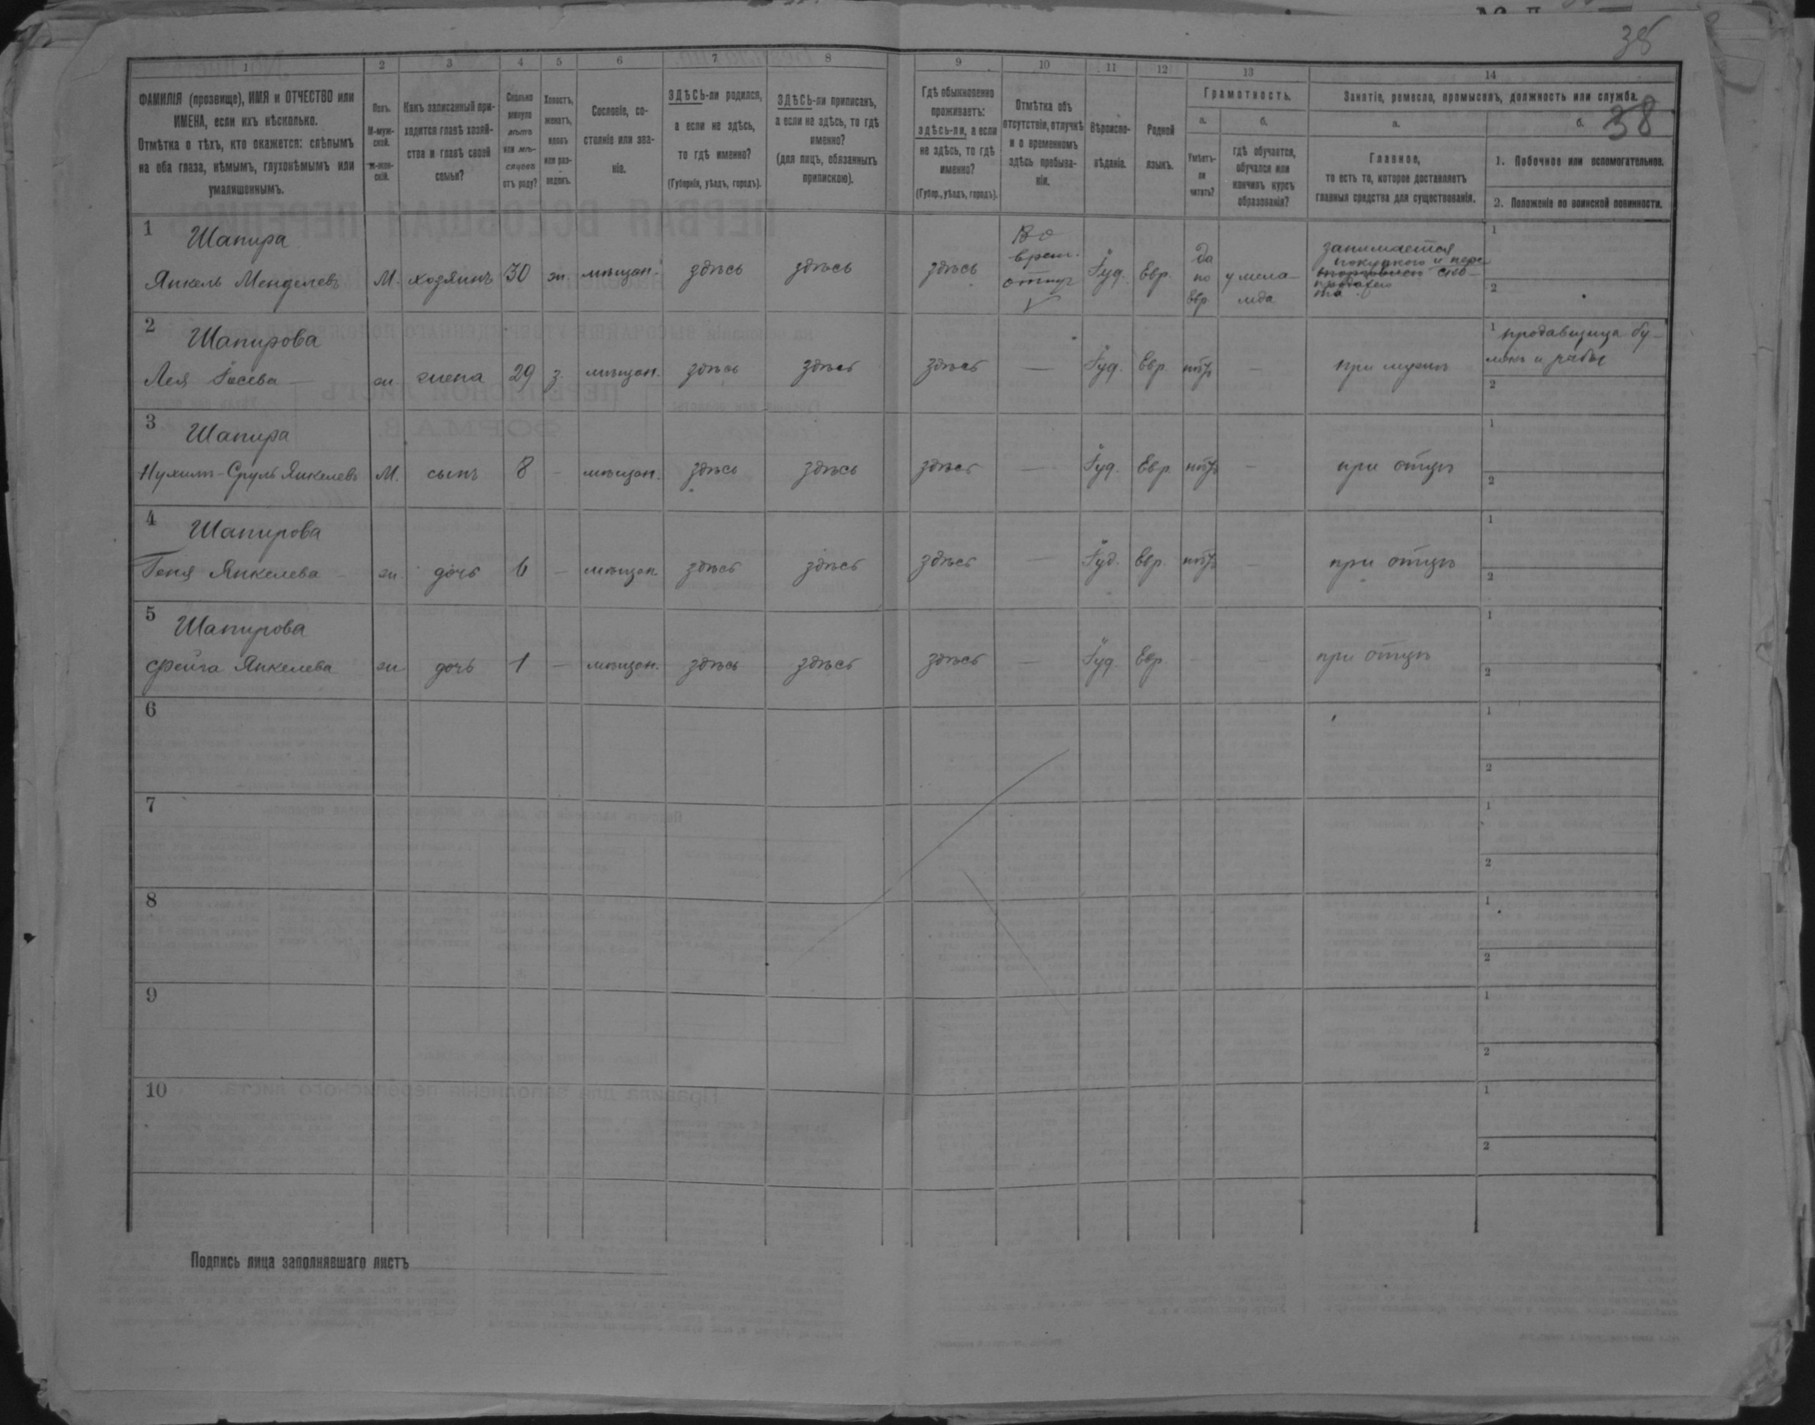 38
38
1 2 3 4 5 6 7 8 9 10 11 12 13 14
ФАМИЛІЯ (прозвище), ИМЯ и ОТЧЕСТВО или
ИМЕНА, если ихъ нѣсколько.
Отмѣтка о тѣхъ, кто окажется: слѣпымъ
на оба глаза, нѣмымъ, глухонѣмымъ или
умалишеннымъ.
Полъ.
М-муж-
ской.
Ж-жен-
скій.
Какъ записанный при-
ходится главѣ хозяй-
ства и главѣ своей
семьи?
Сколько
минуло
лѣтъ
или мѣ-
сяцевъ
отъ роду?
Холостъ,
женатъ,
вдовъ
или раз-
веденъ.
Сословіе, со-
стояніе или зва-
ніе.
ЗДѢСЬ-ли родился,
а если не здѣсь,
то гдѣ именно?
(Губернія, уѣздъ, городъ).
ЗДѢСЬ-ли приписанъ,
а если не здѣсь, то гдѣ
именно?
(для лицъ, обязанныхъ
припискою).
Гдѣ обыкновенно
проживаетъ:
здѣсь-ли, а если
не здѣсь, то гдѣ
именно?
(Губер., уѣздъ, городъ).
Отмѣтка объ
отсутствіи, отлучкѣ
и о временномъ
здѣсь пребыва-
ніи.
Вѣроиспо-
вѣданіе.
Родной
языкъ.
Грамотность.
а.
Умѣетъ-
ли
читать?
б.
гдѣ обучается,
обучался или
кончилъ курсъ
образованія?
Занятіе, ремесло, промыселъ, должность или служба.
а.
Главное,
то есть то, которое доставляетъ
главныя средства для существованія.
б.
1. Побочное или вспомогательное.
2. Положеніе по воинской повинности.
1 Шапира
Янкель Менделевъ М. хозяинъ 30 ж. мѣщан. здѣсь здѣсь здѣсь
Во
врем.
отлуч
Іуд. Евр.
да
по
евр
у мела-
меда
занимается
покупкою и пере
продажею
1
2
2 Шапирова
Лея Іосева — ж жена 29 з. мѣщан. здѣсь здѣсь здѣсь — Іуд. Евр. нѣтъ — при мужѣ
1 продавщица бу-
локъ и рыбы
2
3 Шапира
Нухимъ-Сруль Янкелевъ М. сынъ 8 — мѣщан. здѣсь здѣсь здѣсь — Іуд. Евр. нѣтъ — при отцѣ
1
2
4 Шапирова
Геня Янкелева — ж. дочь 6 — мѣщан здѣсь здѣсь здѣсь — Іуд. Евр. нѣтъ — при отцѣ
1
2
5 Шапирова
Фейга Янкелева ж дочь 1 — мѣщан. здѣсь здѣсь здѣсь — Іуд Евр — — при отцѣ
1
2
6
1
2
7
1
2
8
1
2
9
1
2
10
1
2
Подпись лица заполнявшаго листъ